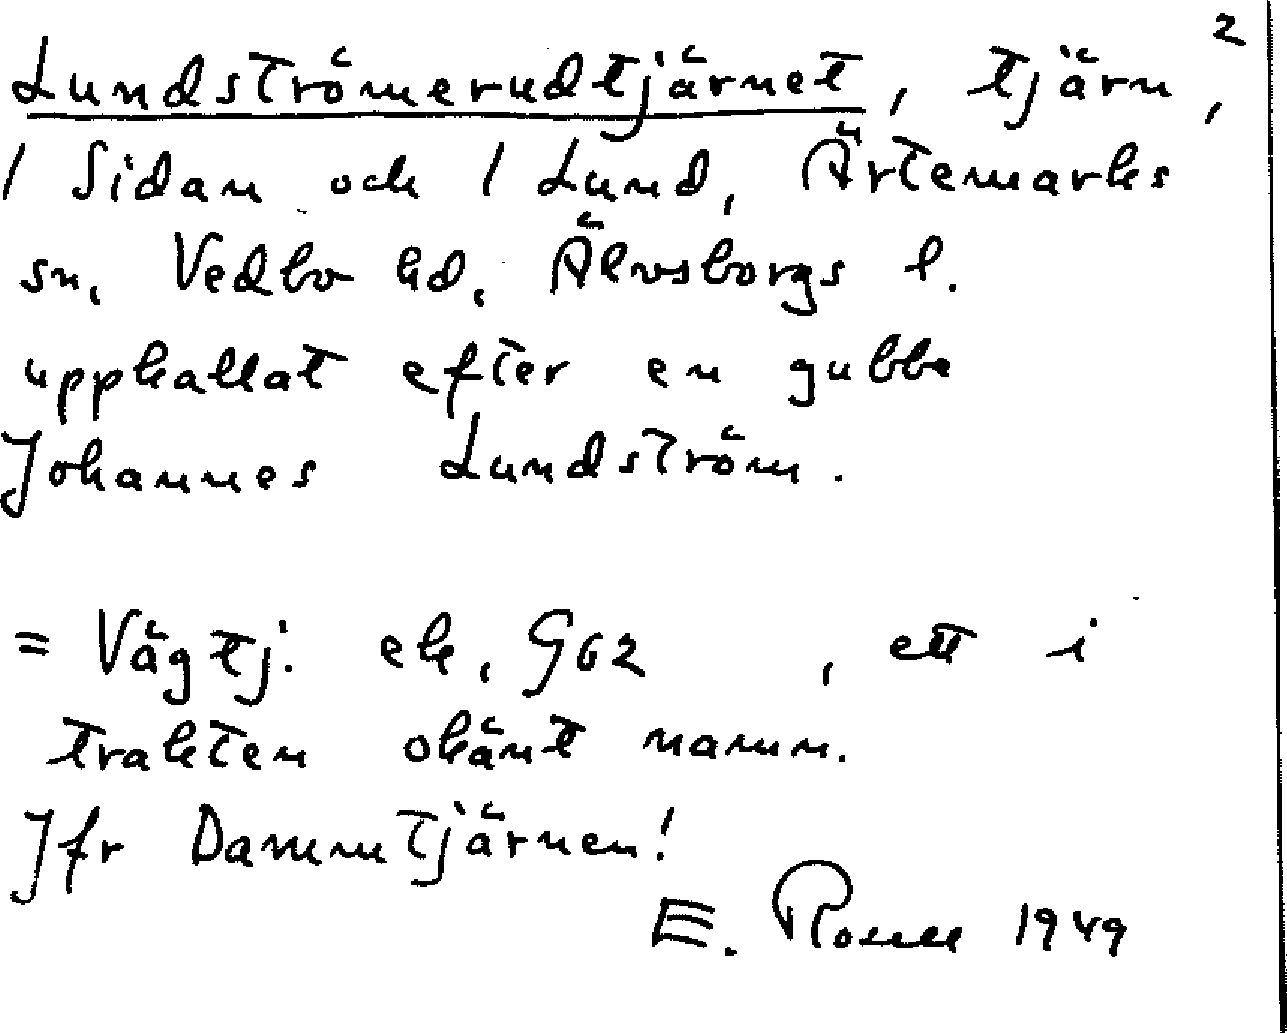 2
Lundströmerudtjärnet, tjärn,
1 Sidan och 1 Lund, Ärtemarks
sn, Vedbo hd, Älvsborgs l.
uppkallat efter en gubbe
Johannes Lundström.
= Vägtj. ek, G62 , ett i
trakten okänt namn.
Jfr Dammtjärnen!
E. 1949